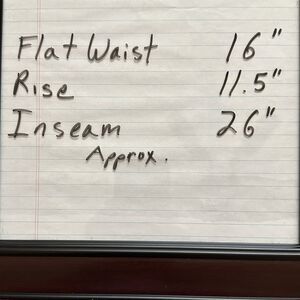 Flat Waist 16"
Rise 11.5"
Inseam 26"
Approx.